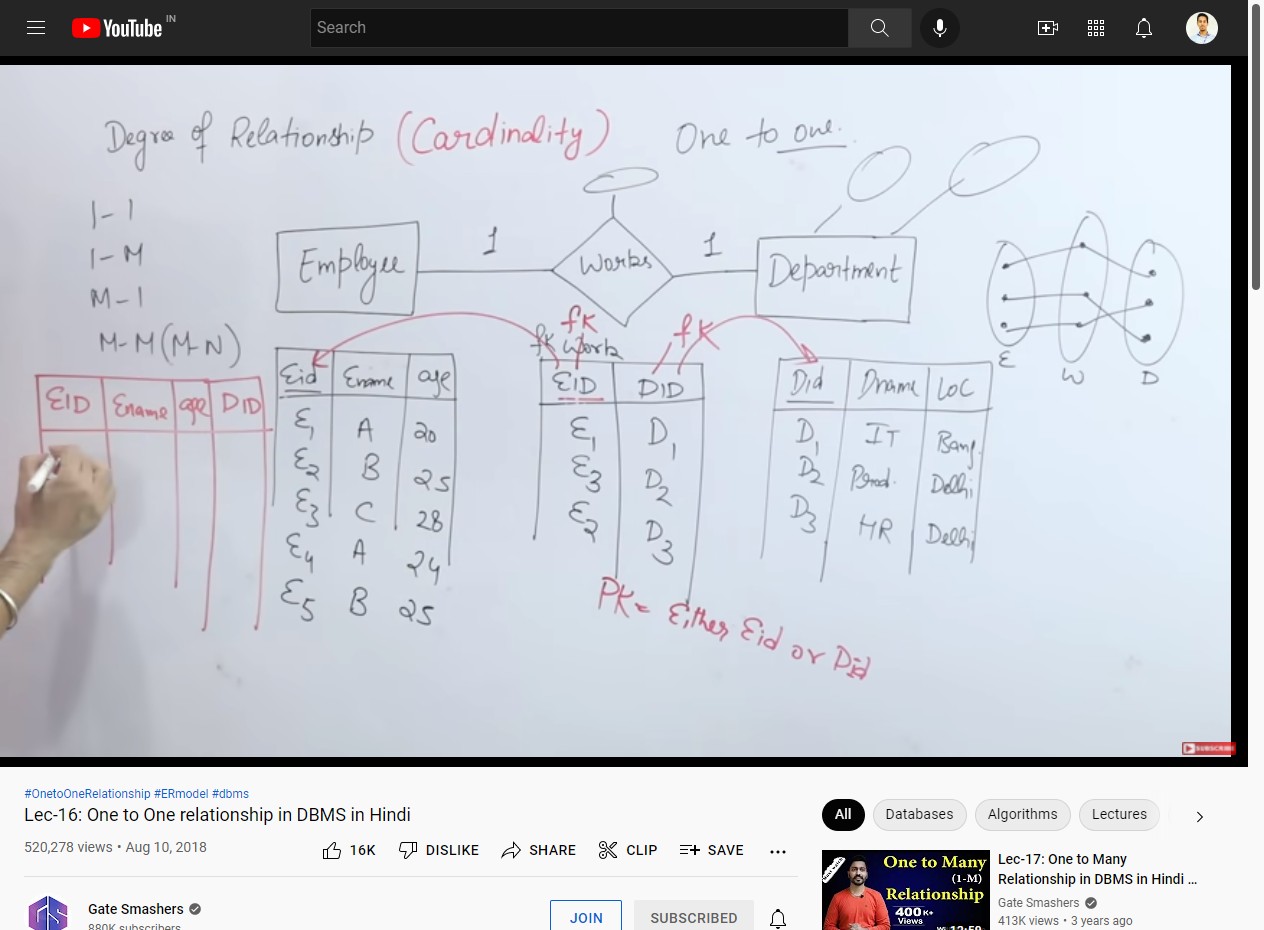 YouTube IN
Search
Degree of Relationship (Cardinality) One to one.
1-1
1-M
M-1
M-M (M-N)
Employee 1 Works 1 Department
E W D
fK
fK Work
fK
EID Ename age DID
Eid Ename age
E1 A 20
E2 B 25
E3 C 28
E4 A 24
E5 B 25
EID DID
E1 D1
E3 D2
E2 D3
Did Dname LOC
D1 IT Bang.
D2 Prod. Delhi
D3 HR Delhi
PK = Either Eid or Did
SUBSCRIBE
#OnetoOneRelationship #ERmodel #dbms
Lec-16: One to One relationship in DBMS in Hindi
520,278 views • Aug 10, 2018
16K DISLIKE SHARE CLIP SAVE
Gate Smashers
880K subscribers
JOIN SUBSCRIBED
All Databases Algorithms Lectures
One to Many
(1-M)
Relationship
400K+
Views
12:59
Lec-17: One to Many
Relationship in DBMS in Hindi ...
Gate Smashers
413K views • 3 years ago